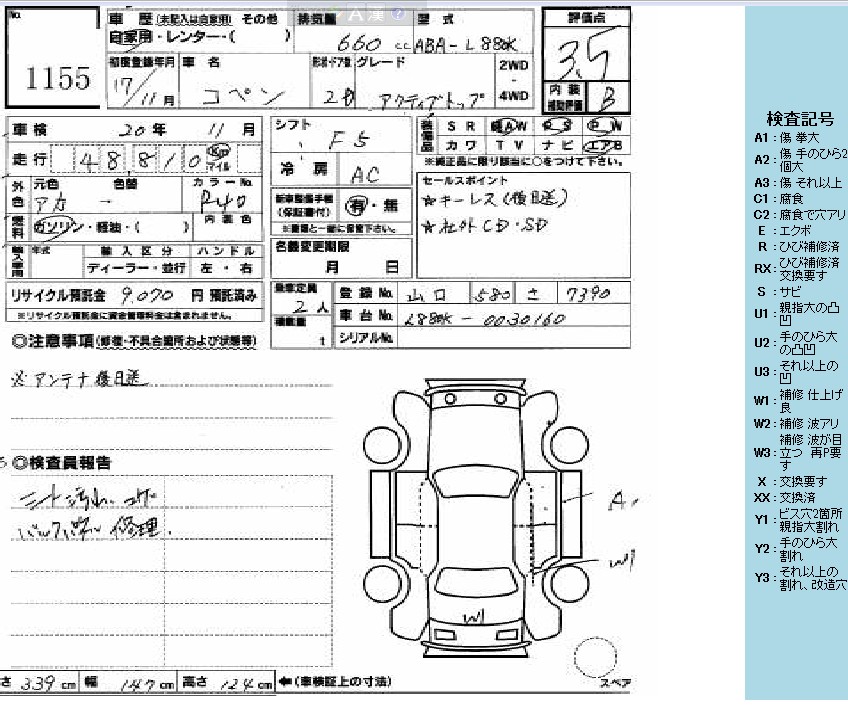 No.
1155
車歴(未記入は自家用) その他
自家用・レンター・( )
排気量
660 cc
型式
ABA-L880K
評価点
3.5
内装
補助評価
B
初度登録年月
17/11月
車名
コペン
形状ドア数
2D
グレード
アクティブトップ
2WD
・
4WD
車検 20年 11月
走行 48810 Km マイル
シフト
F5
冷房
AC
装備品
SR 純AW PS PW
カワ TV ナビ エアB
※純正品に限り該当に○をつけて下さい。
外色
元色 色替 カラーNo.
アカ - R40
燃料
ガソリン・軽油・( )
内装色
新車整備手帳
(保証書付)
有・無
セールスポイント
★キーレス(後日送)
★社外CD・SD
輸入車用
年式 輸入区分 ハンドル
ディーラー・並行 左・右
名義変更期限
月 日
リサイクル預託金 9,070 円 預託済み
※リサイクル預託金に資金管理料金は含まれません。
乗車定員
2人
積載量
t
登録No. 山口 580 さ 7390
車台No. L880K-0030160
シリアルNo.
◎注意事項(修復・不具合箇所および状態等)
※アンテナ後日送
◎検査員報告
シート汚れ、コゲ
修理.
A1
W1
W1
さ 339 cm 幅 147 cm 高さ 124 cm ←(車検証上の寸法)
スペア
検査記号
A1:傷 拳大
A2:傷 手のひら2
個大
A3:傷 それ以上
C1:腐食
C2:腐食で穴アリ
E:エクボ
R:ひび補修済
RX:ひび補修済
交換要す
S:サビ
U1:親指大の凸
凹
U2:手のひら大
の凸凹
U3:それ以上の
凹
W1:補修 仕上げ
良
W2:補修 波アリ
W3:補修 波が目
立つ 再P要
す
X:交換要す
XX:交換済
Y1:ビス穴2箇所
親指大割れ
Y2:手のひら大
割れ
Y3:それ以上の
割れ、改造穴